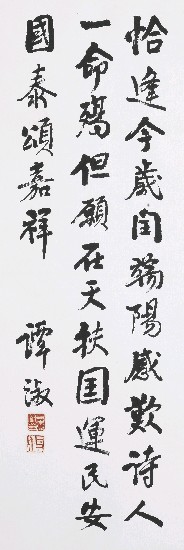 恰逢今歲閏端陽感歎詩人
一命殤但願在天扶国運民安
國泰頌嘉祥 譚淑